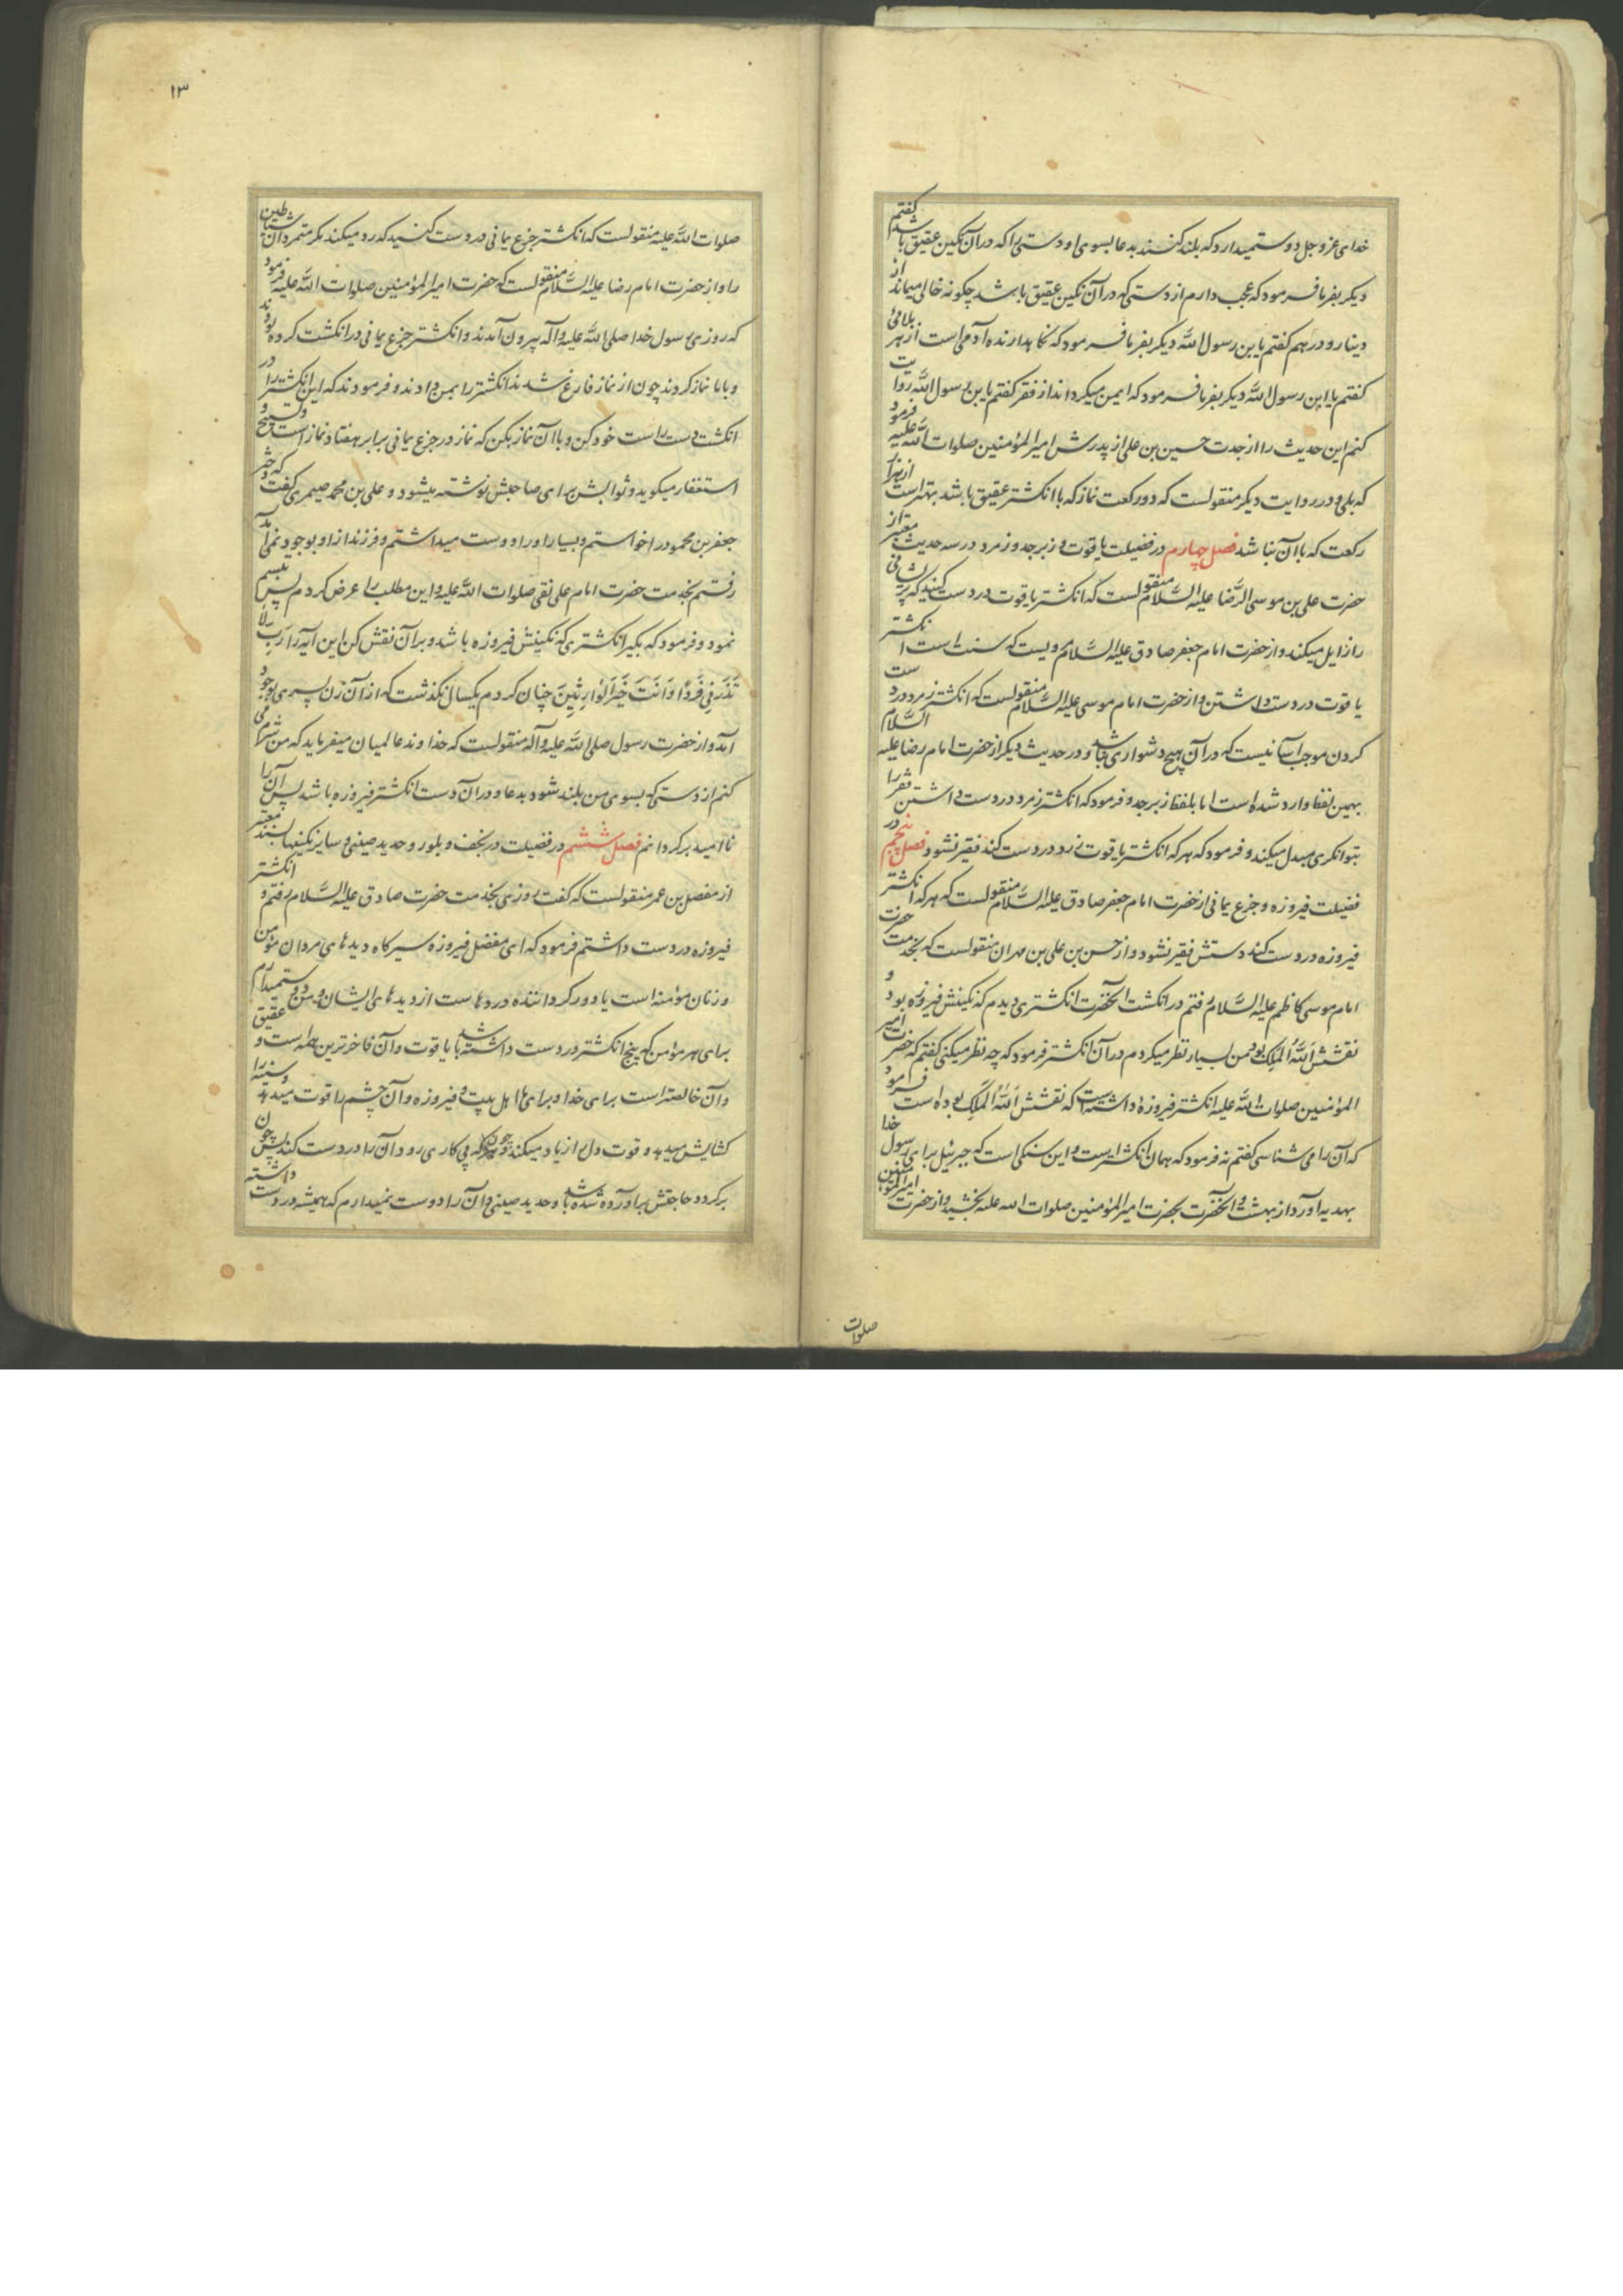 خدای عز و جل دوستمیدارد که بلند کنند بدعا بسوی او دستی را که در آن نگین عقیق باشد گفتم
دیگر بفرما فرمود که عجب دارم از دستی که در آن نگین عقیق باشد چگونه خالی میماند از
دینار و درهم گفتم یابن رسول الله دیگر بفرما فرمود که نگاهدارنده آدمی است از هر بلائی
گفتم یا ابن رسول الله دیگر بفرما فرمود که ایمن میگرداند از فقر گفتم یابن رسول الله روایت
کنم این حدیث را از جدت حسین بن علی از پدرش امیر المؤمنین صلوات الله علیه فرمود
که بلی و در روایت دیگر منقولست که دو رکعت نماز که با انگشتر عقیق باشد بهتر است از هزار
رکعت که با آن نباشد فصل چهارم در فضیلت یاقوت و زبرجد و زمرد در سه حدیث معتبر از
حضرت علی بن موسی الرضا علیه السلام منقولست که انگشتر یاقوت در دست کنید که پریشانی
را زایل میکند و از حضرت امام جعفر صادق علیه السلام مرویست که سنت است انگشتر
یاقوت در دست داشتن و از حضرت امام موسی علیه السلام منقولست که انگشتر زمرد در دست
کردن موجب آسانیست که در آن هیچ دشواری نباشد و در حدیث دیگر از حضرت امام رضا علیه السلام
بهمین لفظ وارد شده است اما بلفظ زبرجد و فرمود که انگشتر زمرد در دست داشتن فقر را
بتوانگری مبدل میکند و فرمود که هر که انگشتر یاقوت زرد در دست کند فقیر نشود فصل پنجم در
فضیلت فیروزه و جزع یمانی از حضرت امام جعفر صادق علیه السلام منقولست که هر که انگشتر
فیروزه در دست کند دستش فقیر نشود و از حسن بن علی بن مهران منقولست که بخدمت حضرت
امام موسی کاظم علیه السلام رفتم در انگشت آنحضرت انگشتری دیدم که نگینش فیروزه بود و
نقشش اَللهُ المَلِک بود من بسیار نظر میکردم در آن انگشتر فرمود که چه نظر میکنی گفتم که حضرت امیر
المؤمنین صلوات الله علیه انگشتر فیروزهٔ داشته است که نقشش اَللهُ المَلِک بوده است فرمود
که آن را می شناسی گفتم نه فرمود که همان انگشتر است و این سنگی است که جبرئیل برای رسول خدا
بهدیه آورد از بهشت و آنحضرت بحضرت امیر المؤمنین صلوات الله علیه بخشید و از حضرت امیر المؤمنین
صلوات
۱۳
صلوات الله علیه منقولست که انگشتر جزع یمانی در دست کنید که رد میکند مکر متمردان شیاطین
را و از حضرت امام رضا علیه السلام منقولست که حضرت امیر المؤمنین صلوات الله علیه فرمود
که روزی رسول خدا صلی الله علیه و آله بیرون آمدند و انگشتر جزع یمانی در انگشت کرده بودند
و با ما نماز کردند چون از نماز فارغ شدند انگشتر را بمن دادند و فرمودند که این انگشتر را در
انگشت دست راست خود کن و با آن نماز بکن که نماز در جزع یمانی برابر هفتاد نماز است و تسبیح و
استغفار میگوید و ثوابش برای صاحبش نوشته میشود و علی بن محمد صیمری گفت که دختر
جعفر بن محمود را خواستم و بسیار او را دوست میداشتم و فرزند از او بوجود نمی آمد
رفتم بخدمت حضرت امام علی نقی صلوات الله علیه و این مطلب را عرض کردم پس تبسم
نمود و فرمود که بگیر انگشتری که نگینش فیروزه باشد و بر آن نقش کن این آیه را رَبِّ لا
تَذَرنِی فَرْدًا وَ اَنتَ خَیرُ الوارِثِینَ چنان کردم یکسال نگذشت که از آن زن پسری بوجود
آمد و از حضرت رسول صلی الله علیه و آله منقولست که خداوند عالمیان میفرماید که من شرم می
کنم از دستی که بسوی من بلند شود بدعا و در آن دست انگشتر فیروزه باشد پس آن را
نا امید برگردانم فصل ششم در فضیلت در نجف و بلور و حدید صینی و سایر نگینها بسند معتبر
از مفضل بن عمر منقولست که گفت روزی بخدمت حضرت صادق علیه السلام رفتم و انگشتر
فیروزه در دست داشتم فرمود که ای مفضل فیروزه سیرگاه دیدهای مردان مؤمن
و زنان مؤمنه است یا دور گرداننده دردهاست از دیدهای ایشان و من دوستمیدارم
برای هر مؤمن که پنج انگشتر در دست داشته باشد یاقوت و آن فاخرترین همه است و عقیق
و آن خالصتر است برای خدا و برای ما اهل بیت و فیروزه و آن چشم را قوت میدهد و سینه را
کشایش میدهد و قوت دل را زیاد میکند و چون که پی کاری رود آن را در دست کند پس چون
برگردد حاجتش برآورده شده باشد و حدید صینی و آن را دوست نمیدارم که همیشه در دست داشته